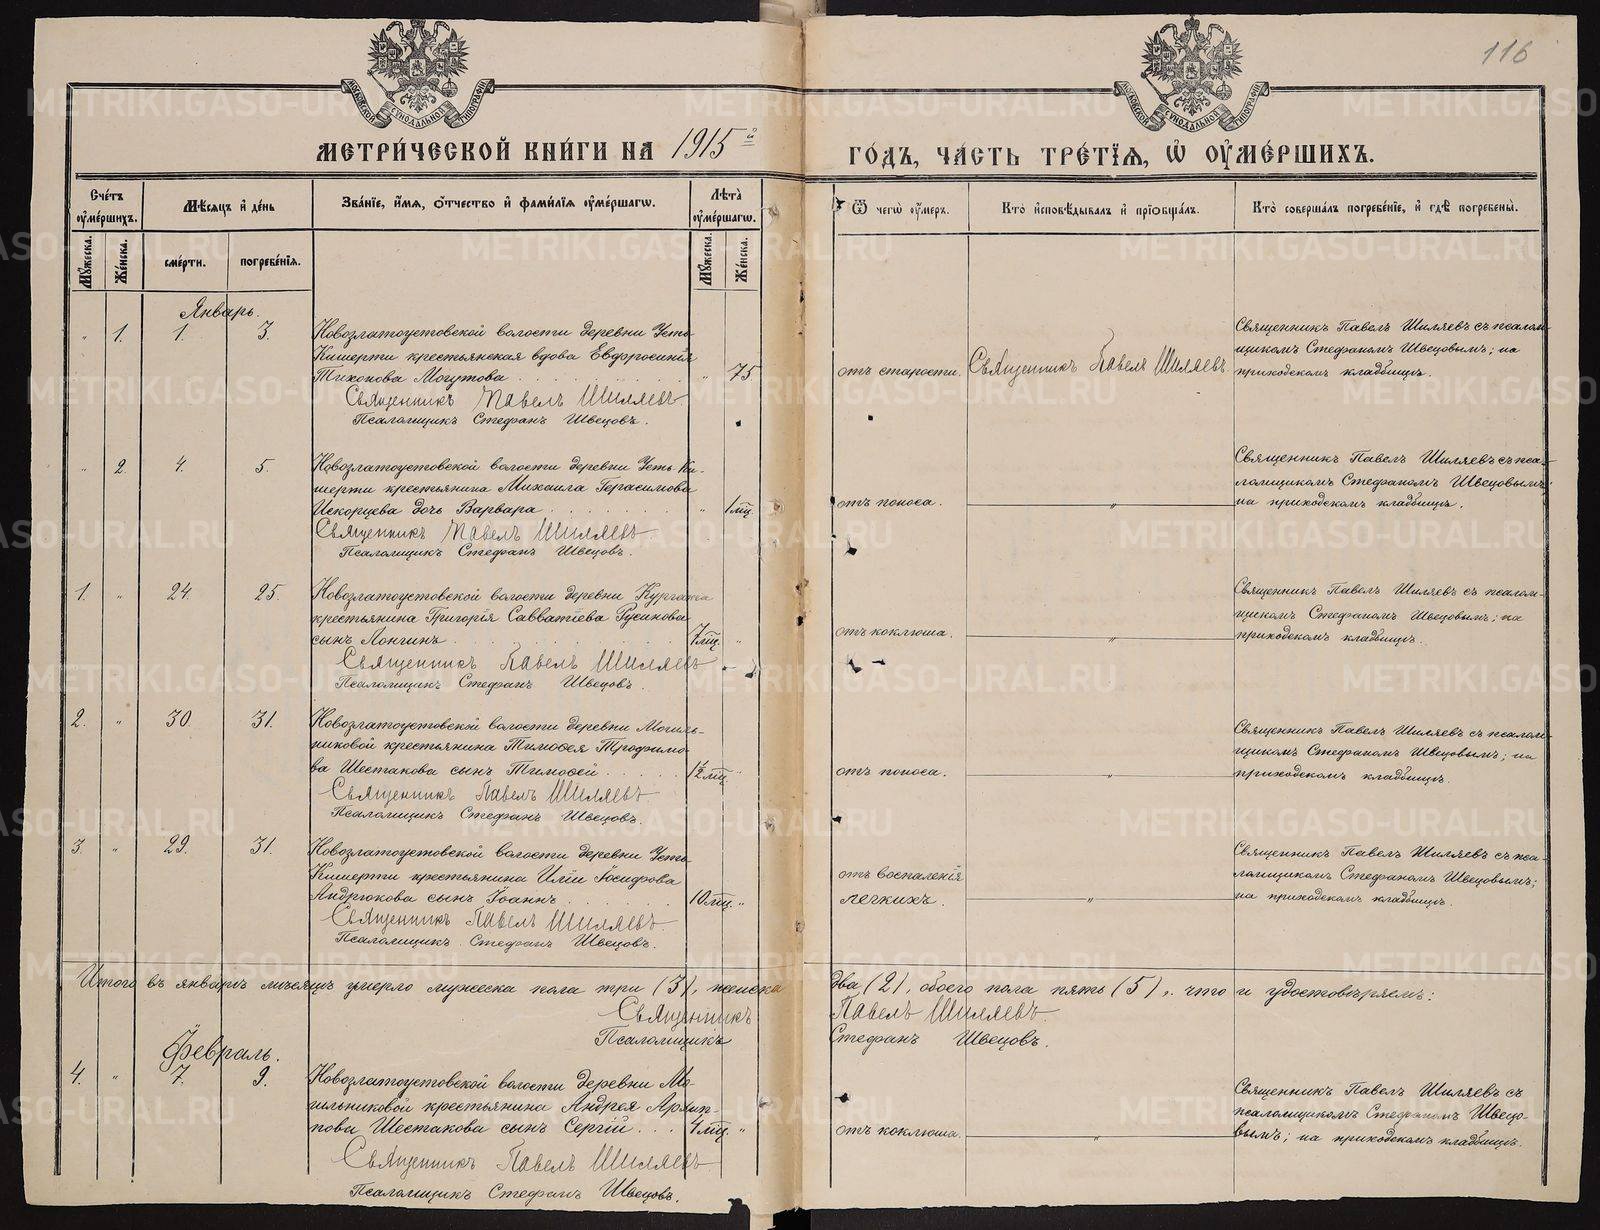 116
МЕТРИ́ЧЕСКОЙ КНИ́ГИ НА 1915й ГО́ДЪ, ЧА́СТЬ ТРЕ́ТІѦ, Ѡ҆ ОУ҆МЕ́РШИХЪ.
Сче́тъ оу҆ме́ршихъ.
Мѣ́сяцъ и҆ де́нь
Зва́ніе, и҆́мя, о҆́тчество и҆ фами́лія оу҆ме́ршагѡ.
Лѣ́та оу҆ме́ршагѡ.
Ѿ чегѡ̀ оу҆́меръ.
Кто̀ и҆сповѣ́дывалъ и҆ пріѻбща́лъ.
Кто̀ соверша́лъ погребе́ніе, и҆ гдѣ̀ погребены̀.
Му́жеска.
Же́нска.
сме́рти.
погребе́нія.
Му́жеска.
Же́нска.
Январь.
" 1. 1. 3. Новозлатоустовской волости деревни Усть-
Кишерти крестьянская вдова Евфросинія
Тихонова Могутова " 75
Священникъ Павелъ Шиляевъ.
Псаломщикъ Стефанъ Швецовъ.
отъ старости. Священникъ Павелъ Шиляевъ
Священникъ Павелъ Шиляевъ съ псалом-
щикомъ Стефаномъ Швецовымъ; на
приходскомъ кладбищѣ.
" 2. 4. 5. Новозлатоустовской волости деревни Усть-Ки-
шерти крестьянина Михаила Герасимова
Искорцева дочь Варвара " 1 мѣц.
Священникъ Павелъ Шиляевъ
Псаломщикъ Стефанъ Швецовъ.
отъ поноса. "
Священникъ Павелъ Шиляевъ съ пса-
ломщикомъ Стефаномъ Швецовымъ;
на приходскомъ кладбищѣ.
1. " 24. 25. Новозлатоустовской волости деревни Кургана
крестьянина Григорія Савватіева Русинова
сынъ Лонгинъ 7 мѣц. "
Священникъ Павелъ Шиляевъ
Псаломщикъ Стефанъ Швецовъ.
отъ коклюша. "
Священникъ Павелъ Шиляевъ съ псалом-
щикомъ Стефаномъ Швецовымъ; на
приходскомъ кладбищѣ.
2. " 30. 31. Новозлатоустовской волости деревни Могиль-
никовой крестьянина Тимофея Трофимо-
ва Шестакова сынъ Тимофей 1½ мѣц. "
Священникъ Павелъ Шиляевъ
Псаломщикъ Стефанъ Швецовъ.
отъ поноса. "
Священникъ Павелъ Шиляевъ съ псалом-
щикомъ Стефаномъ Швецовымъ; на
приходскомъ кладбищѣ.
3. " 29. 31. Новозлатоустовской волости деревни Усть-
Кишерти крестьянина Иліи Іосифова
Андрюкова сынъ Іоаннъ 10 мѣц. "
Священникъ Павелъ Шиляевъ.
Псаломщикъ Стефанъ Швецовъ.
отъ воспаленія
легкихъ. "
Священникъ Павелъ Шиляевъ съ пса-
ломщикомъ Стефаномъ Швецовымъ;
на приходскомъ кладбищѣ.
Итого въ январѣ мѣсяцѣ умерло мужеска пола три (3), женска два (2), обоего пола пять (5), что и удостовѣряемъ:
Священникъ Павелъ Шиляевъ.
Псаломщикъ Стефанъ Швецовъ.
Февраль.
4. " 7. 9. Новозлатоустовской волости деревни Мо-
гильниковой крестьянина Андрея Архип-
пова Шестакова сынъ Сергій 4 мѣц. "
Священникъ Павелъ Шиляевъ
Псаломщикъ Стефанъ Швецовъ.
отъ коклюша. "
Священникъ Павелъ Шиляевъ съ
псаломщикомъ Стефаномъ Швецо-
вымъ; на приходскомъ кладбищѣ.
METRIKI.GASO-URAL.RU